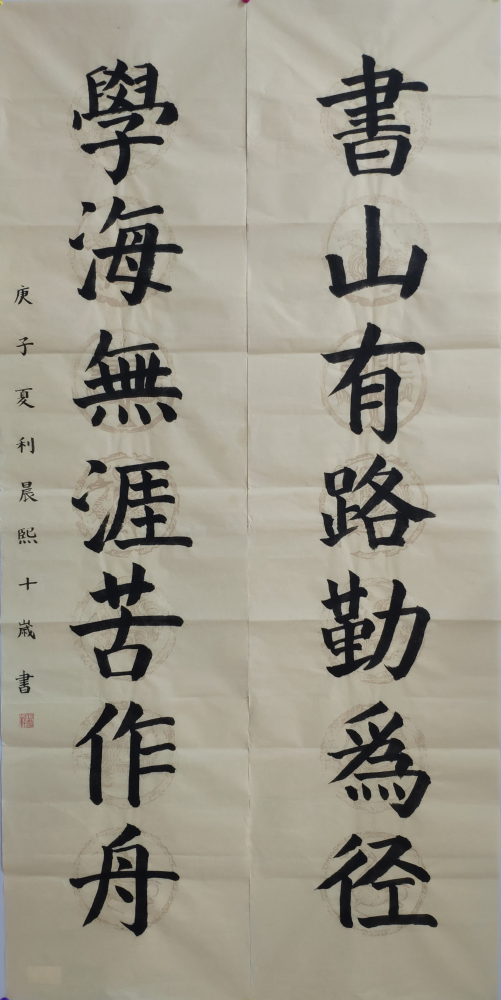 書山有路勤為径
學海無涯苦作舟
庚子夏利晨熙十嵗書